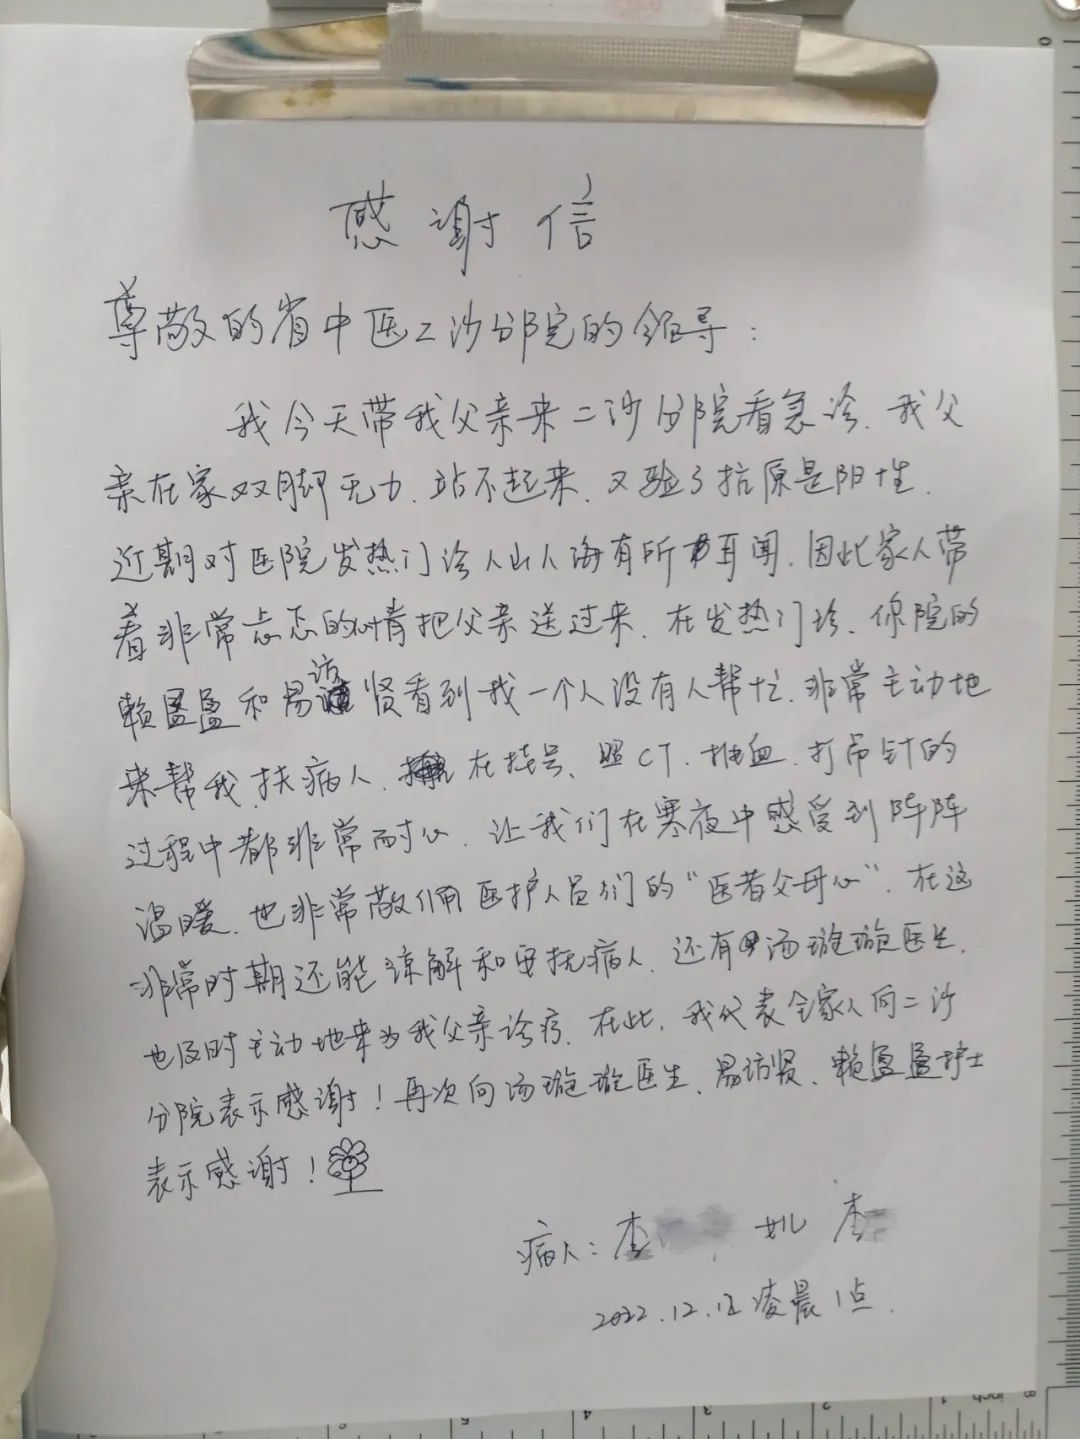 感谢信
尊敬的省中医二沙分院的领导：
我今天带我父亲来二沙分院看急诊、我父
亲在家双脚无力、站不起来、又验了抗原是阳性.
近期对医院发热门诊人山人海有所耳闻、因此家人带
着非常忐忑的心情把父亲送过来、在发热门诊、你院的
赖盈盈和易访贤看到我一个人没有人帮忙、非常主动地
来帮我扶病人、在挂号、照CT、抽血、打吊针的
过程中都非常耐心、让我们在寒夜中感受到阵阵
温暖、也非常敬佩医护人员们的“医者父母心”、在这
非常时期还能谅解和安抚病人、还有汤璇璇医生、
也及时主动地来为我父亲诊疗、在此、我代表全家人向二沙
分院表示感谢！再次向汤璇璇医生、易访贤、赖盈盈护士
表示感谢！
病人：李 女儿 李
2022.12.12凌晨1点.
0
inch
8
6
5
4
3
2
1